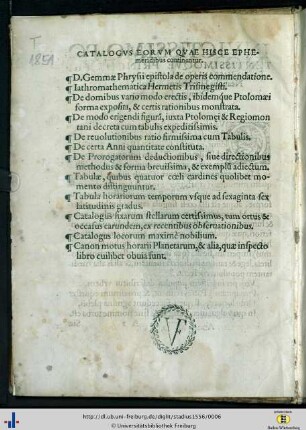 T
1851
CATALOGVS EORVM QVAE HISCE EPHE-
meridibus continentur.
¶ D. Gemmæ Phrysij epistola de operis commendatione.
¶ Iathromathematica Hermetis Trismegisti.
¶ De domibus vario modo erectis, ibidemque Ptolomæi
forma exposita, & certis rationibus monstrata.
¶ De modo erigendi figurã, iuxta Ptolomęi & Regiomon
tani decreta cum tabulis expeditissimis.
¶ De reuolutionibus ratio firmissima cum Tabulis.
¶ De certa Anni quantitate constituta.
¶ De Prorogatorum deductionibus, siue directionibus
methodus & forma breuissima, & exemplũ adiectum.
¶ Tabulæ, quibus quatuor cœli cardines quolibet mo-
mento distinguuntur.
¶ Tabulæ horariorum temporum vsque ad sexaginta sex
latitudinis gradus.
¶ Catalogus fixarum stellarum certissimus, tum ortus &
occasus earundem, ex recentibus obseruationibus.
¶ Catalogus locorum maximè nobilium.
¶ Canon motus horarij Planetarum, & alia, quæ inspecto
libro cuilibet obuia sunt.
VF
http://dl.ub.uni-freiburg.de/diglit/stadius1556/0006
© Universitätsbibliothek Freiburg